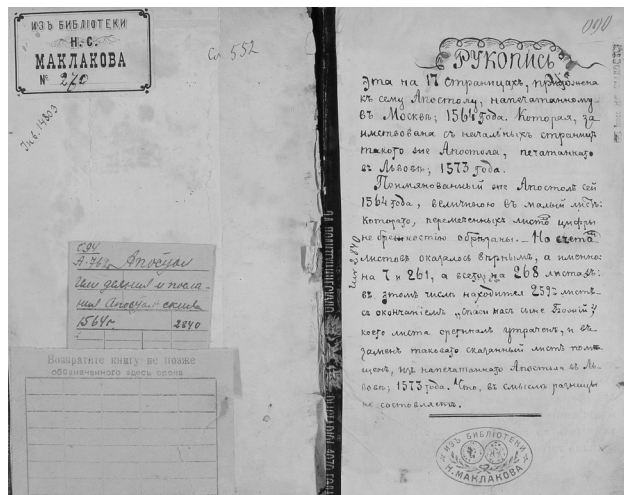 ИЗЪ БИБЛІОТЕКИ
Н. С.
МАКЛАКОВА
№ 270
Сл 552
Инв. 14303
СЭЧ
А-762 Апостол
или деяния и посла-
ния Апостольские
1564г. 2840
Возвратите книгу не позже
обозначенного здесь срока
РУКОПИСЬ
Эта на 17 страницахъ, приложена
къ сему Апостолу, напечатанному
въ Москвѣ; 1564 года. Которая, за
имствована съ начальныхъ страницъ
такого же Апостола, печатаннаго
въ Львовѣ; 1573 года.
Поимянованный же Апостолъ сей
1564 года, величиною въ малый листъ:
Котораго, перемеченныхъ листовъ цифры
небрежностію обрѣзаны. - Но счета
листовъ оказалось вѣрнымъ, а именно:
на 7 и 261, а всего на 268 листахъ:
въ этомъ числѣ находится 259й листъ
съ окончаніемъ „Спаси насъ сыне Божій“;
коего листа оригиналъ утраченъ, и въ
замѣнъ таковаго сказанный листъ помѣ-
щенъ, изъ напечатаннаго Апостола въ Ль-
вовѣ; 1573 года. Что, въ смыслѣ разницы
не составляетъ.
ИЗЪ БИБЛІОТЕКИ
Н. МАКЛАКОВА